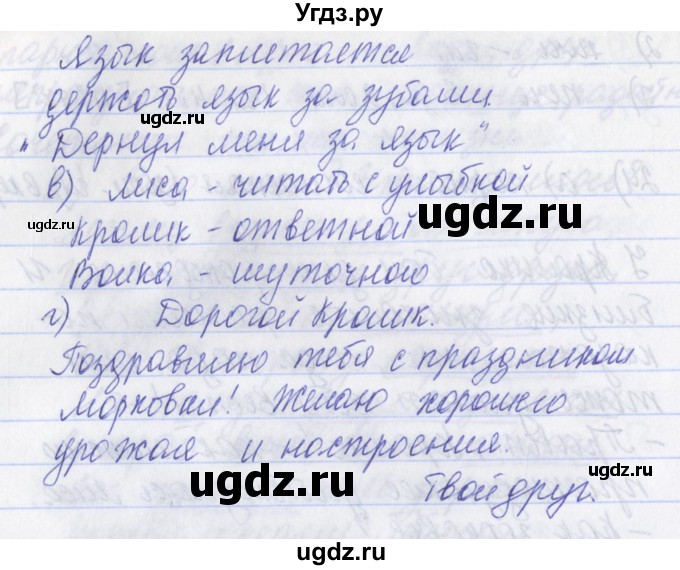 Угдз.ру
Язык заплетается
держать язык за зубами.
"Дернул меня за язык"
в) лиса - читать с улыбкой
кролик - ответной
Волка - шуточного
г) Дорогой Кролик.
Поздравляю тебя с праздником
Морковки! Желаю хорошего
урожая и настроения.
Твой друг.
ugdz.ru
ugdz.ru
ugdz.ru
ugdz.ru
ugdz.ru
ugdz.ru
ugdz.ru
ugdz.ru
ugdz.ru